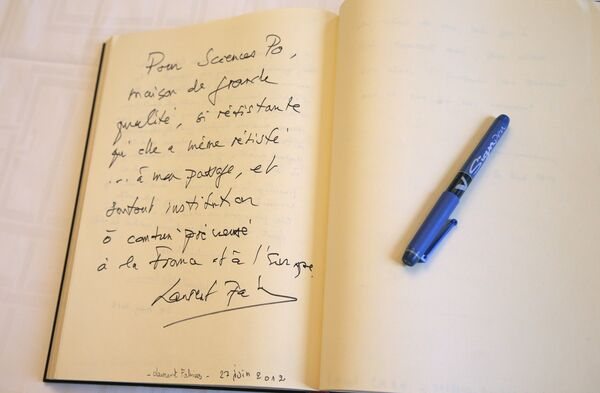 Pour Sciences Po,
maison de grande
qualité, si résistante
qu'elle a même résisté
... à mon passage, et
surtout institution
ô combien précieuse
à la France et à l'Europe
Laurent Fabius
- Laurent Fabius - 27 juin 2012
V Sign pen